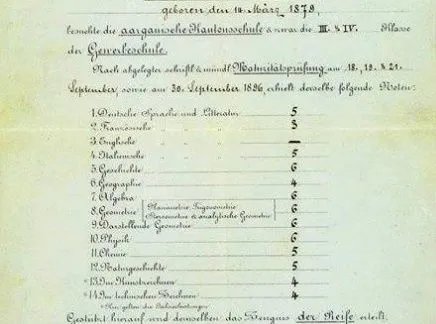 geboren den 14. März 1879,
besuchte die aargauische Kantonsschule & zwar die III. & IV. Klasse
der Gewerbeschule.
Nach abgelegter schriftl. & mündl. Maturitätsprüfung am 18., 19. & 21.
September, sowie am 30. September 1896, erhielt derselbe folgende Noten:
1. Deutsche Sprache und Litteratur 5
2. Französische " " " 3
3. Englische " " " —
4. Italienische " " " 5
5. Geschichte 6
6. Geographie 4
7. Algebra 6
8. Geometrie { Planimetrie, Trigonometrie Stereometrie & analytische Geometrie } 6
9. Darstellende Geometrie 6
10. Physik 6
11. Chemie 5
12. Naturgeschichte 5
*13. Im Kunstzeichnen 4
*14. Im technischen Zeichnen 4
* Hier gelten die Jahresleistungen.
Gestützt hierauf wird demselben das Zeugnis der Reife erteilt.